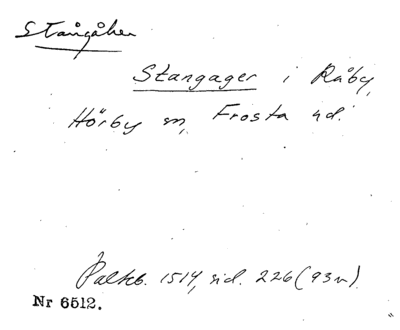 Stångåker
Stangager i Råby,
Hörby sn, Frosta hd.
Palteb. 1514, sid. 226 (93v).
Nr 6512.